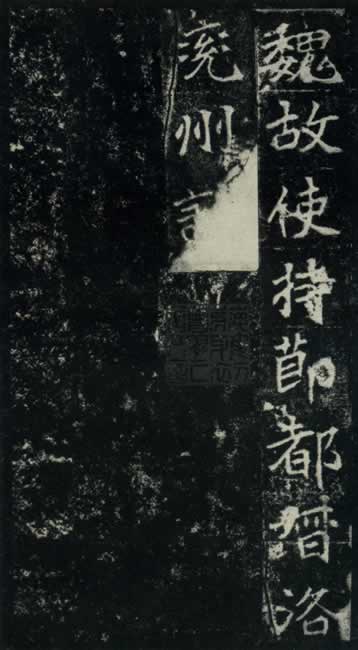 魏故使持節都督洛
兖州